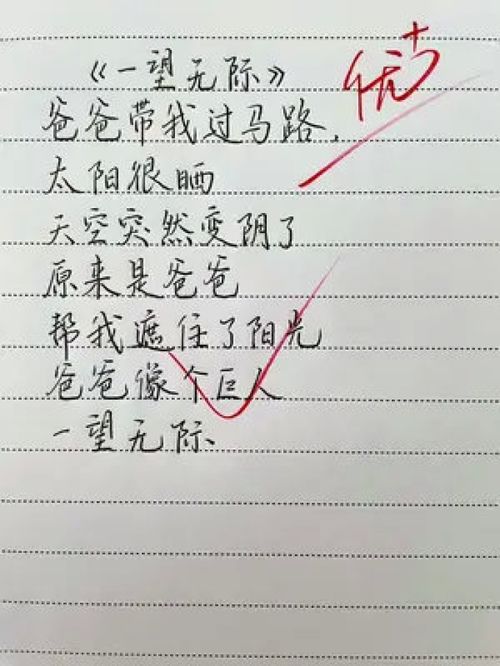 《一望无际》
优+
爸爸带我过马路，
太阳很晒
天空突然变阴了
原来是爸爸
帮我遮住了阳光
爸爸像个巨人
一望无际、